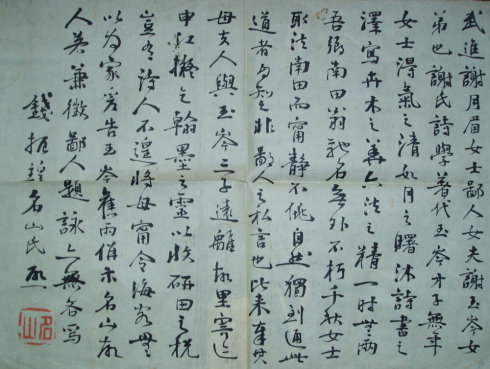 武進謝月眉女士鄙人女夫謝玉岑女
弟也謝氏詩學著代玉岑才子無年
女士淂氣之清如月之曙沐詩書之
澤寫卉木之美六法之精一時無兩
吾鄉南田翁馳名無外不朽千秋女士
取法南田而甯静不佻自然獨到通此
道者自知之非鄙人之私言也比來奉其
母夫人與玉岑三子遠離故里寄迹
申江擬乞翰墨之靈以收研田之税
豈有詩人不遑將母甯令海客無
以為家爰告玉岑舊雨名山故
人兼徵鄙人題詠亦無吝焉
錢振鍠名山氏啟
名山